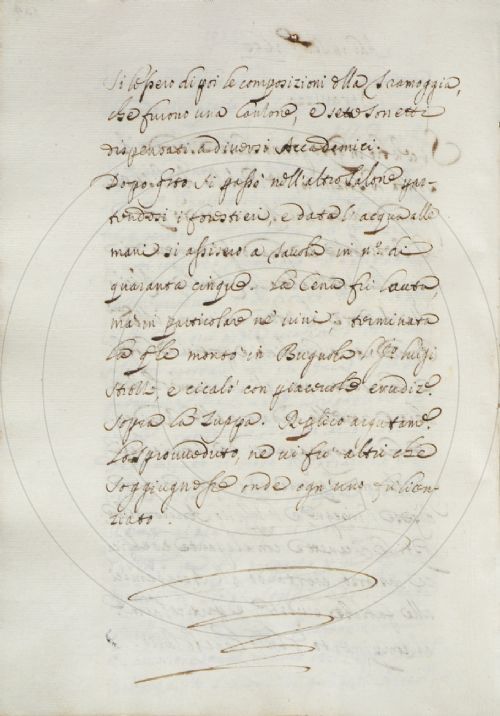 Si lessero di poi le composizioni della Tramoggia,
che furono una Canzone, e sete sonetti
dispensati a diversi Accademici.
Dopo sito si passò nell'altro salone par-
tendosi i forestieri, e data l'acqua alle
mani si assisero a Tavola in n.º di
quaranta cinque. La Cena fù lauta,
mà in particolare ne vini, terminata
la q.le montò in Bugnola Luigi
e cicalò con piacevole erudiz.e
sopra la Zuppa. Replicò argutam.e
Lo Sprovveduto, ne vi fù altri che
soggiugnesse onde ogn'uno fu licen-
ziato.